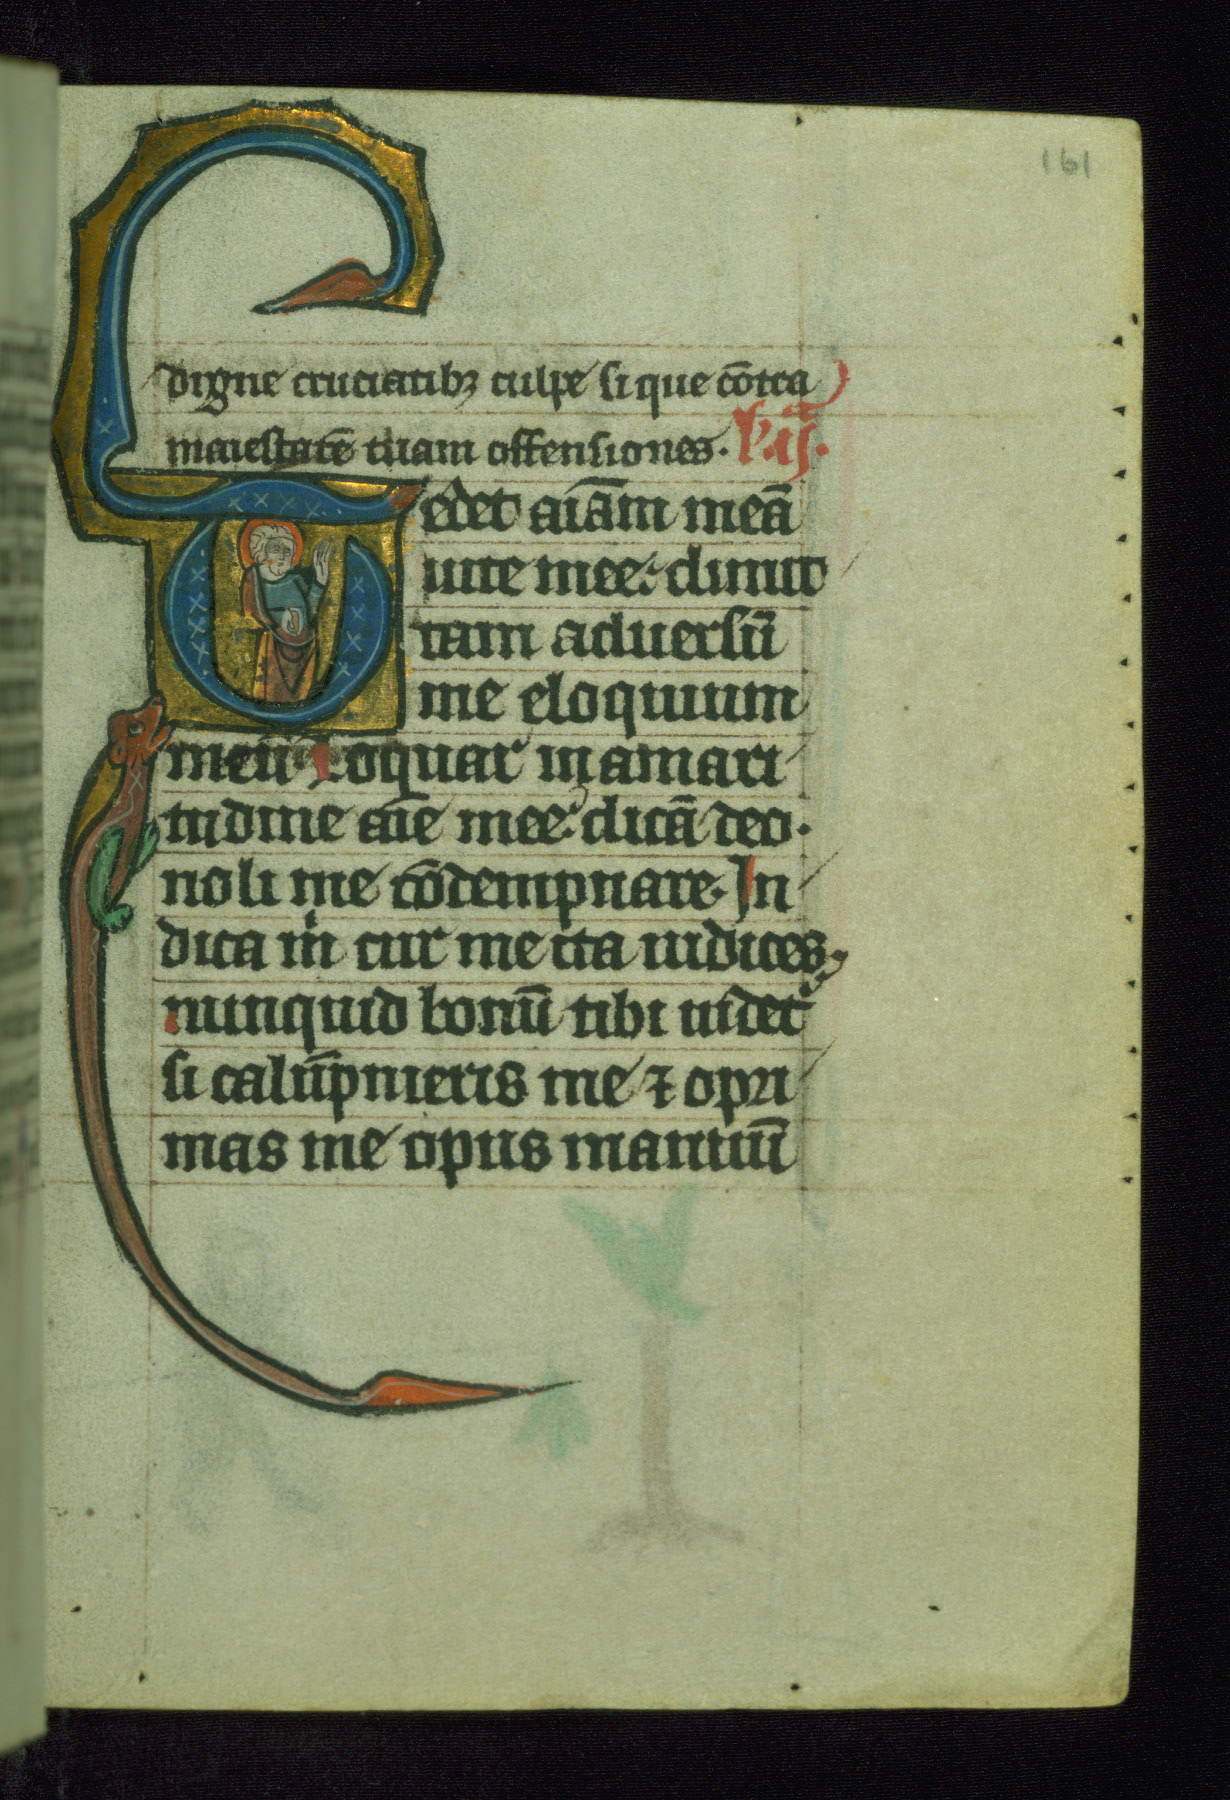 161
digne cruciatibꝫ culpe si que cōtra
maiestatē tuam offensiones. l'. ija.
Tedet aīam meā
uite mee. dimit
tam aduersū
me eloquium
meū Loquar in amari
tudine aīe mee. dicā deo.
noli me cōdempnare. In
dica mͥ cur me ita iudices.
nunquid bonū tibi uidet᷑
si calūpnieris me ⁊ opri
mas me opus manuū